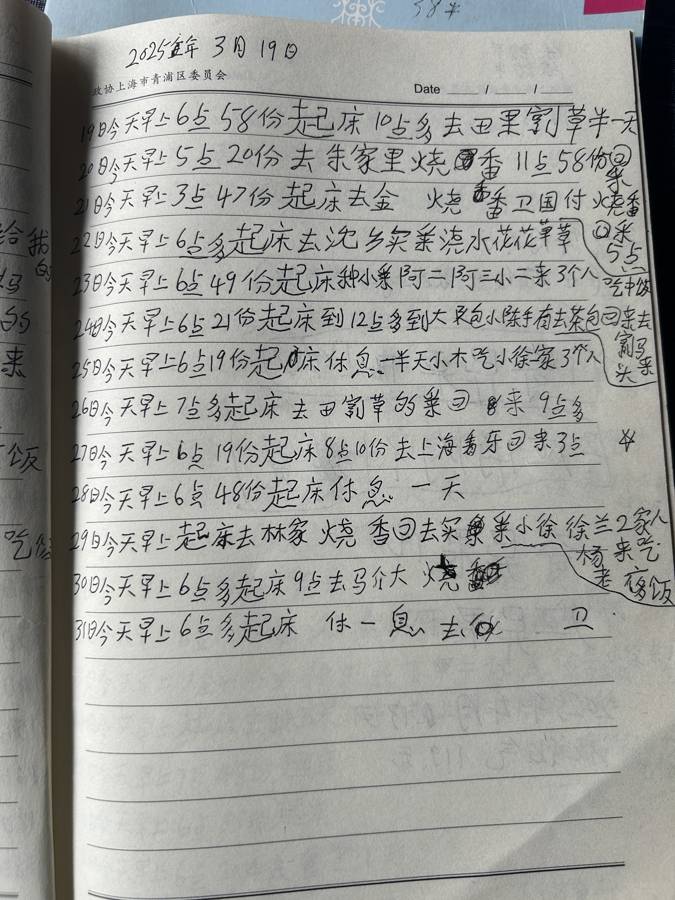 38半
2025年 3月19日
政协上海市青浦区委员会
Date / /
19日今天早上6点58份起床10点多去田果割草半一天
20日今天早上5点20份去朱家里烧香11点58份回来
21日今天早上3点47份起床去金 烧香卫国付烧香回来5点
22日今天早上6点多起床去沈乡买菜浇水花花草草
23日今天早上6点49份起床种小菜阿二阿三小二来3个人吃中饭
24日今天早上6点21份起床到12点多到大 包小陈手有去茶包回来去割马来头
25日今天早上6点19份起床休息一半天小木吃小徐家3个人
26日今天早上7点多起床去田割草的菜回来9点多
27日今天早上6点19份起床8点10份去上海看牙回来3点
28日今天早上6点48份起床休息一天
29日今天早上起床去林家烧香回去买菜小徐徐兰2家人杨老来吃夜饭
30日今天早上6点多起床9点去马个大烧香
31日今天早上6点多起床 休一息 去 卫
给我
的
妈
的
来
饭
吃饭